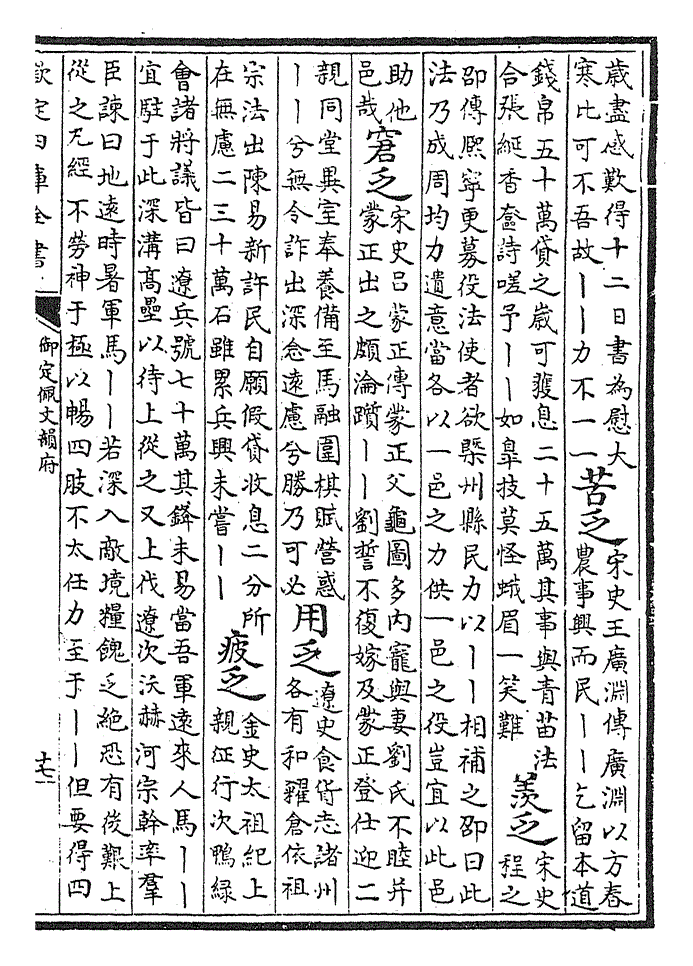 歲盡感歎得十二日書為慰大
寒比可不吾故丨丨力不一一
苦乏
宋史王廣淵傳廣淵以方春
農事興而民丨丨乞留本道
錢帛五十萬貸之歲可獲息二十五萬其事與青苗法
合張綖香奩詩嗟予丨丨如皐技莫怪蛾眉一笑難
羨乏
宋史
程之
邵傳熙寧更募役法使者欲槩州縣民力以丨丨相補之邵曰此
法乃成周均力遺意當各以一邑之力供一邑之役豈宜以此邑
助他
邑哉
窘乏
宋史呂蒙正傳蒙正父龜圖多內寵與妻劉氏不睦并
蒙正出之頗淪躓丨丨劉誓不復嫁及蒙正登仕迎二
親同堂異室奉養備至馬融圍棋賦營惑
丨丨兮無令詐出深念遠慮兮勝乃可必
用乏
遼史食貨志諸州
各有和糴倉依祖
宗法出陳易新許民自願假貸收息二分所
在無慮二三十萬石雖累兵興未嘗丨丨
疲乏
金史太祖紀上
親征行次鴨綠
會諸將議皆曰遼兵號七十萬其鋒未易當吾軍遠來人馬丨丨
宜駐于此深溝高壘以待上從之又上伐遼次沃赫河宗幹率羣
臣諫曰地遠時暑軍馬丨丨若深入敵境糧餽乏絕恐有後艱上
從之尢經不勞神于極以暢四肢不太任力至于丨丨但要得四
欽定四庫全書
御定佩文韻府
十七